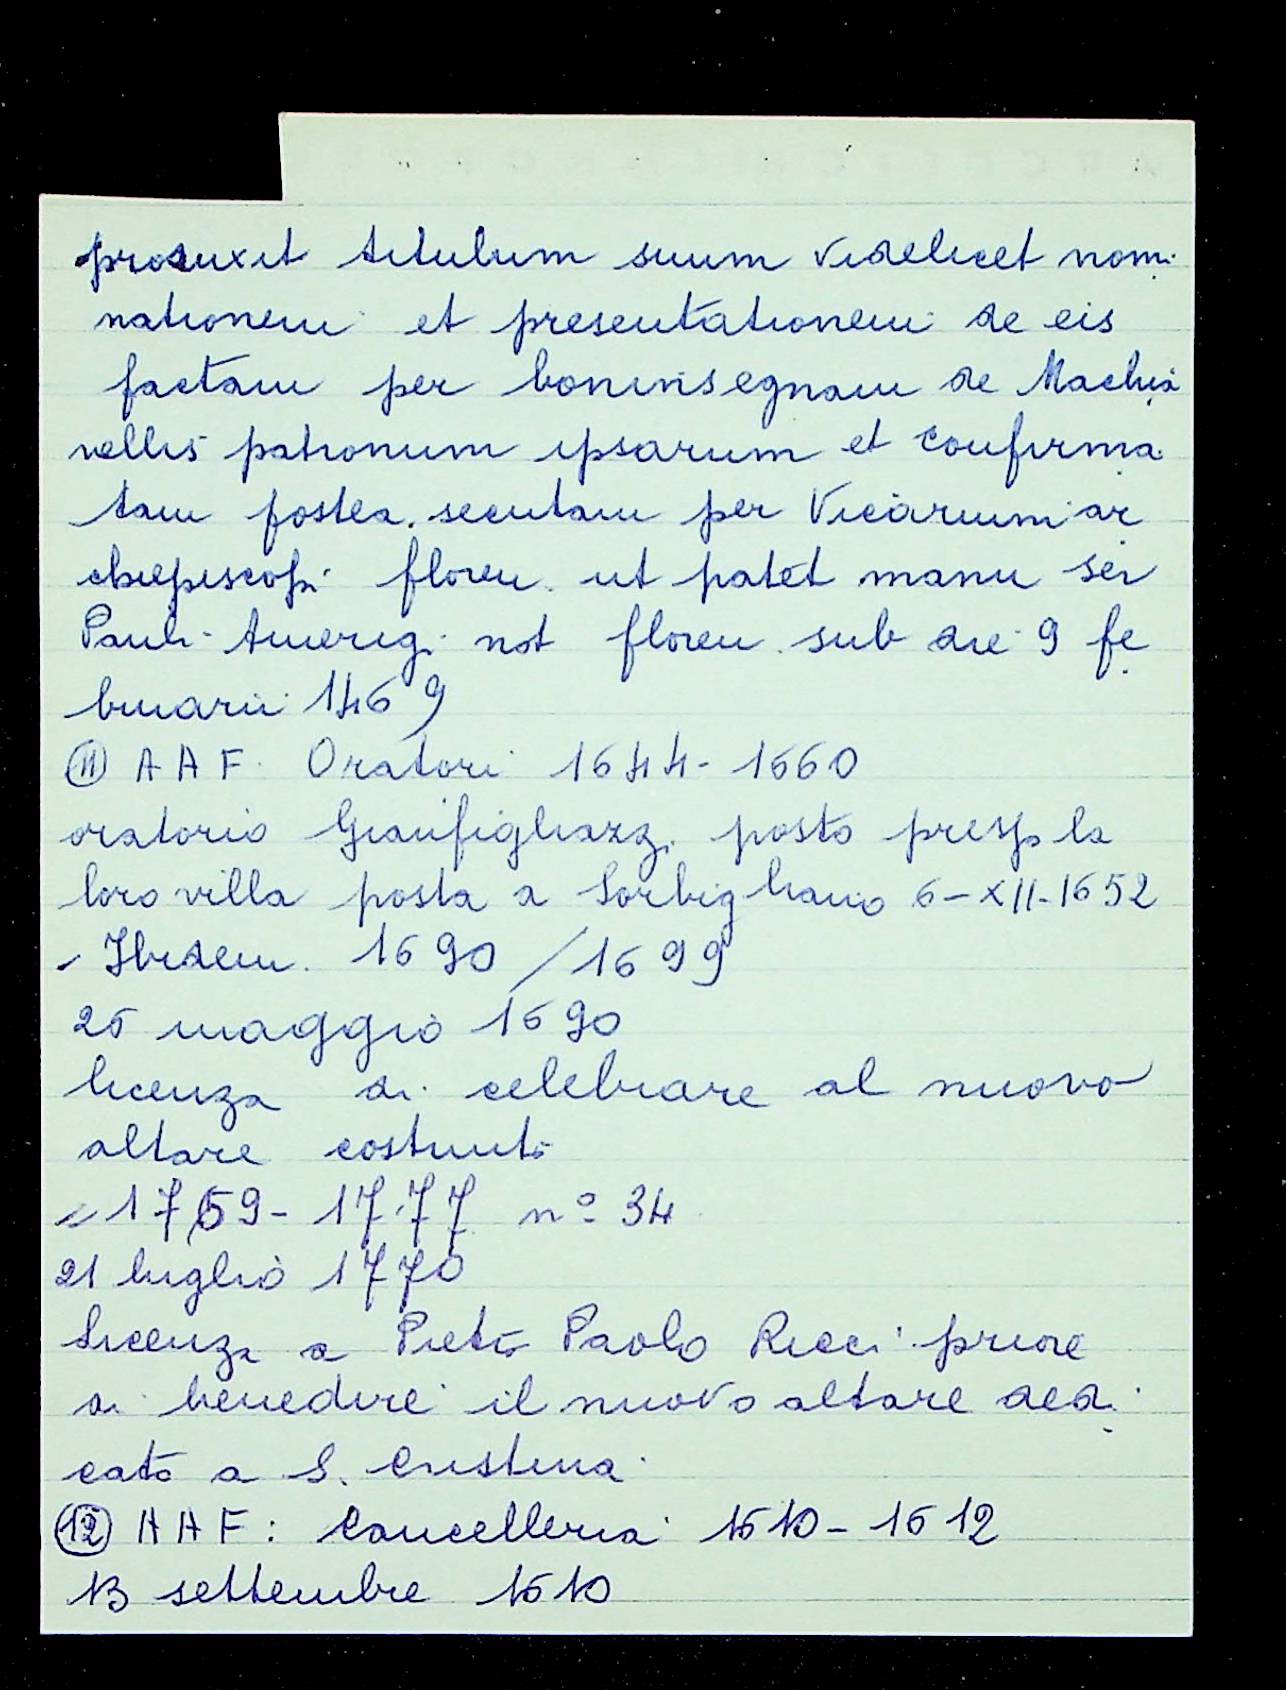 produxit titulum suum videlicet nomi
nationem et presentationem de eis
factam per boninsegnam de Machia
vellis patronum ipsarum et confirma
tam postea secutam per Vicarium ar
chiepiscopi floren. ut patet manu ser
Pauli Amerigi not floren. sub die 9 fe
bruarii 1469
(11) A A F. Oratori 1644-1660
oratorio Gianfigliazzi posto presso la
loro villa posta a Sorbigliano 6-XII-1652
- Ibidem. 1690/1699
26 maggio 1690
licenza di celebrare al nuovo
altare costruito
= 1769-1777 n° 34
21 luglio 1770
licenza a Pietro Paolo Ricci priore
di benedire il nuovo altare dedi
cato a S. Cristina
(12) A A F: Cancelleria 1610-1612
13 settembre 1610